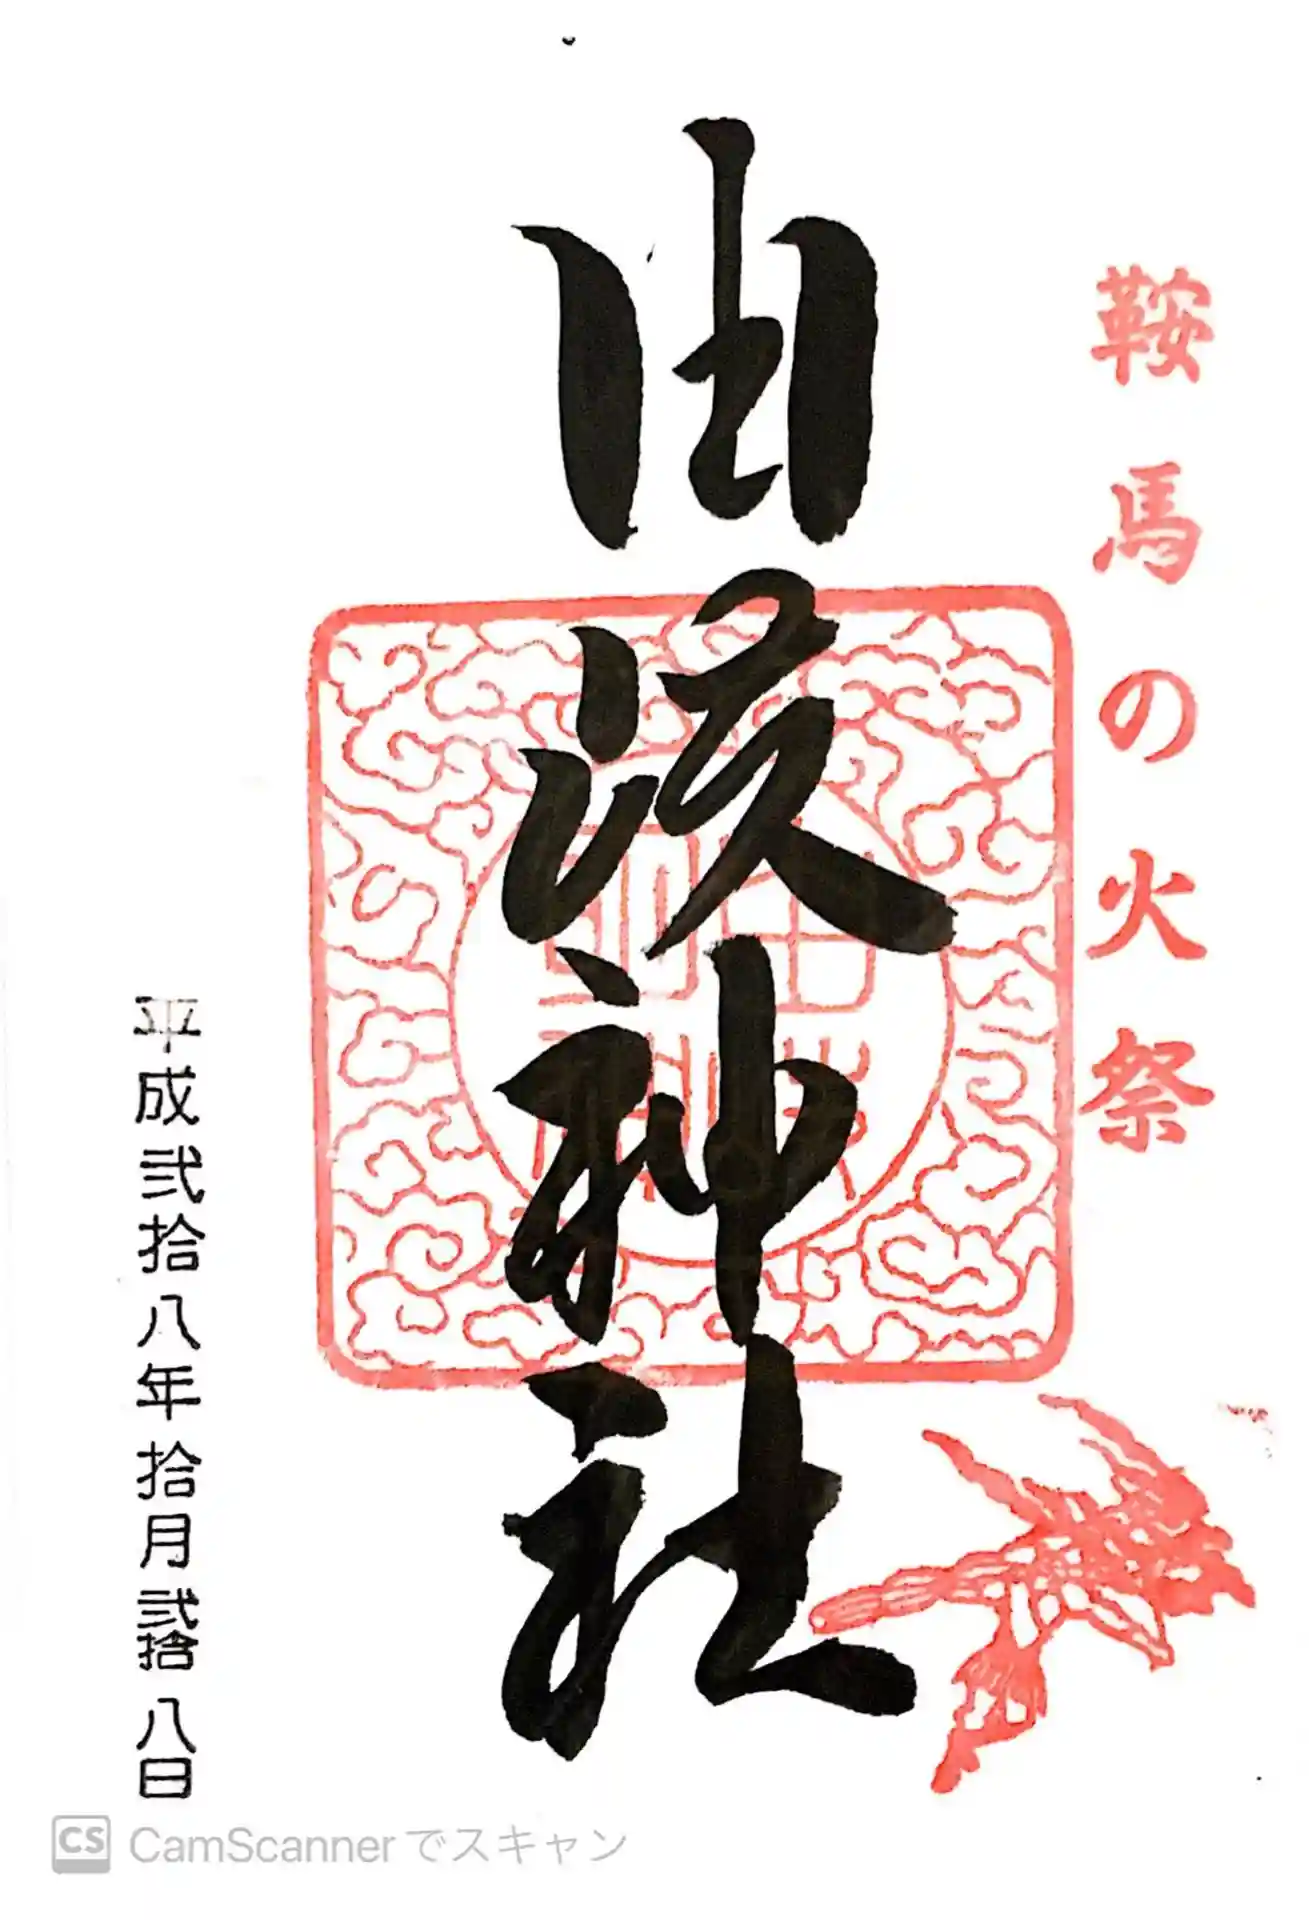 鞍馬の火祭
由岐神社
平成弐拾八年拾月弐拾八日
CS CamScannerでスキャン